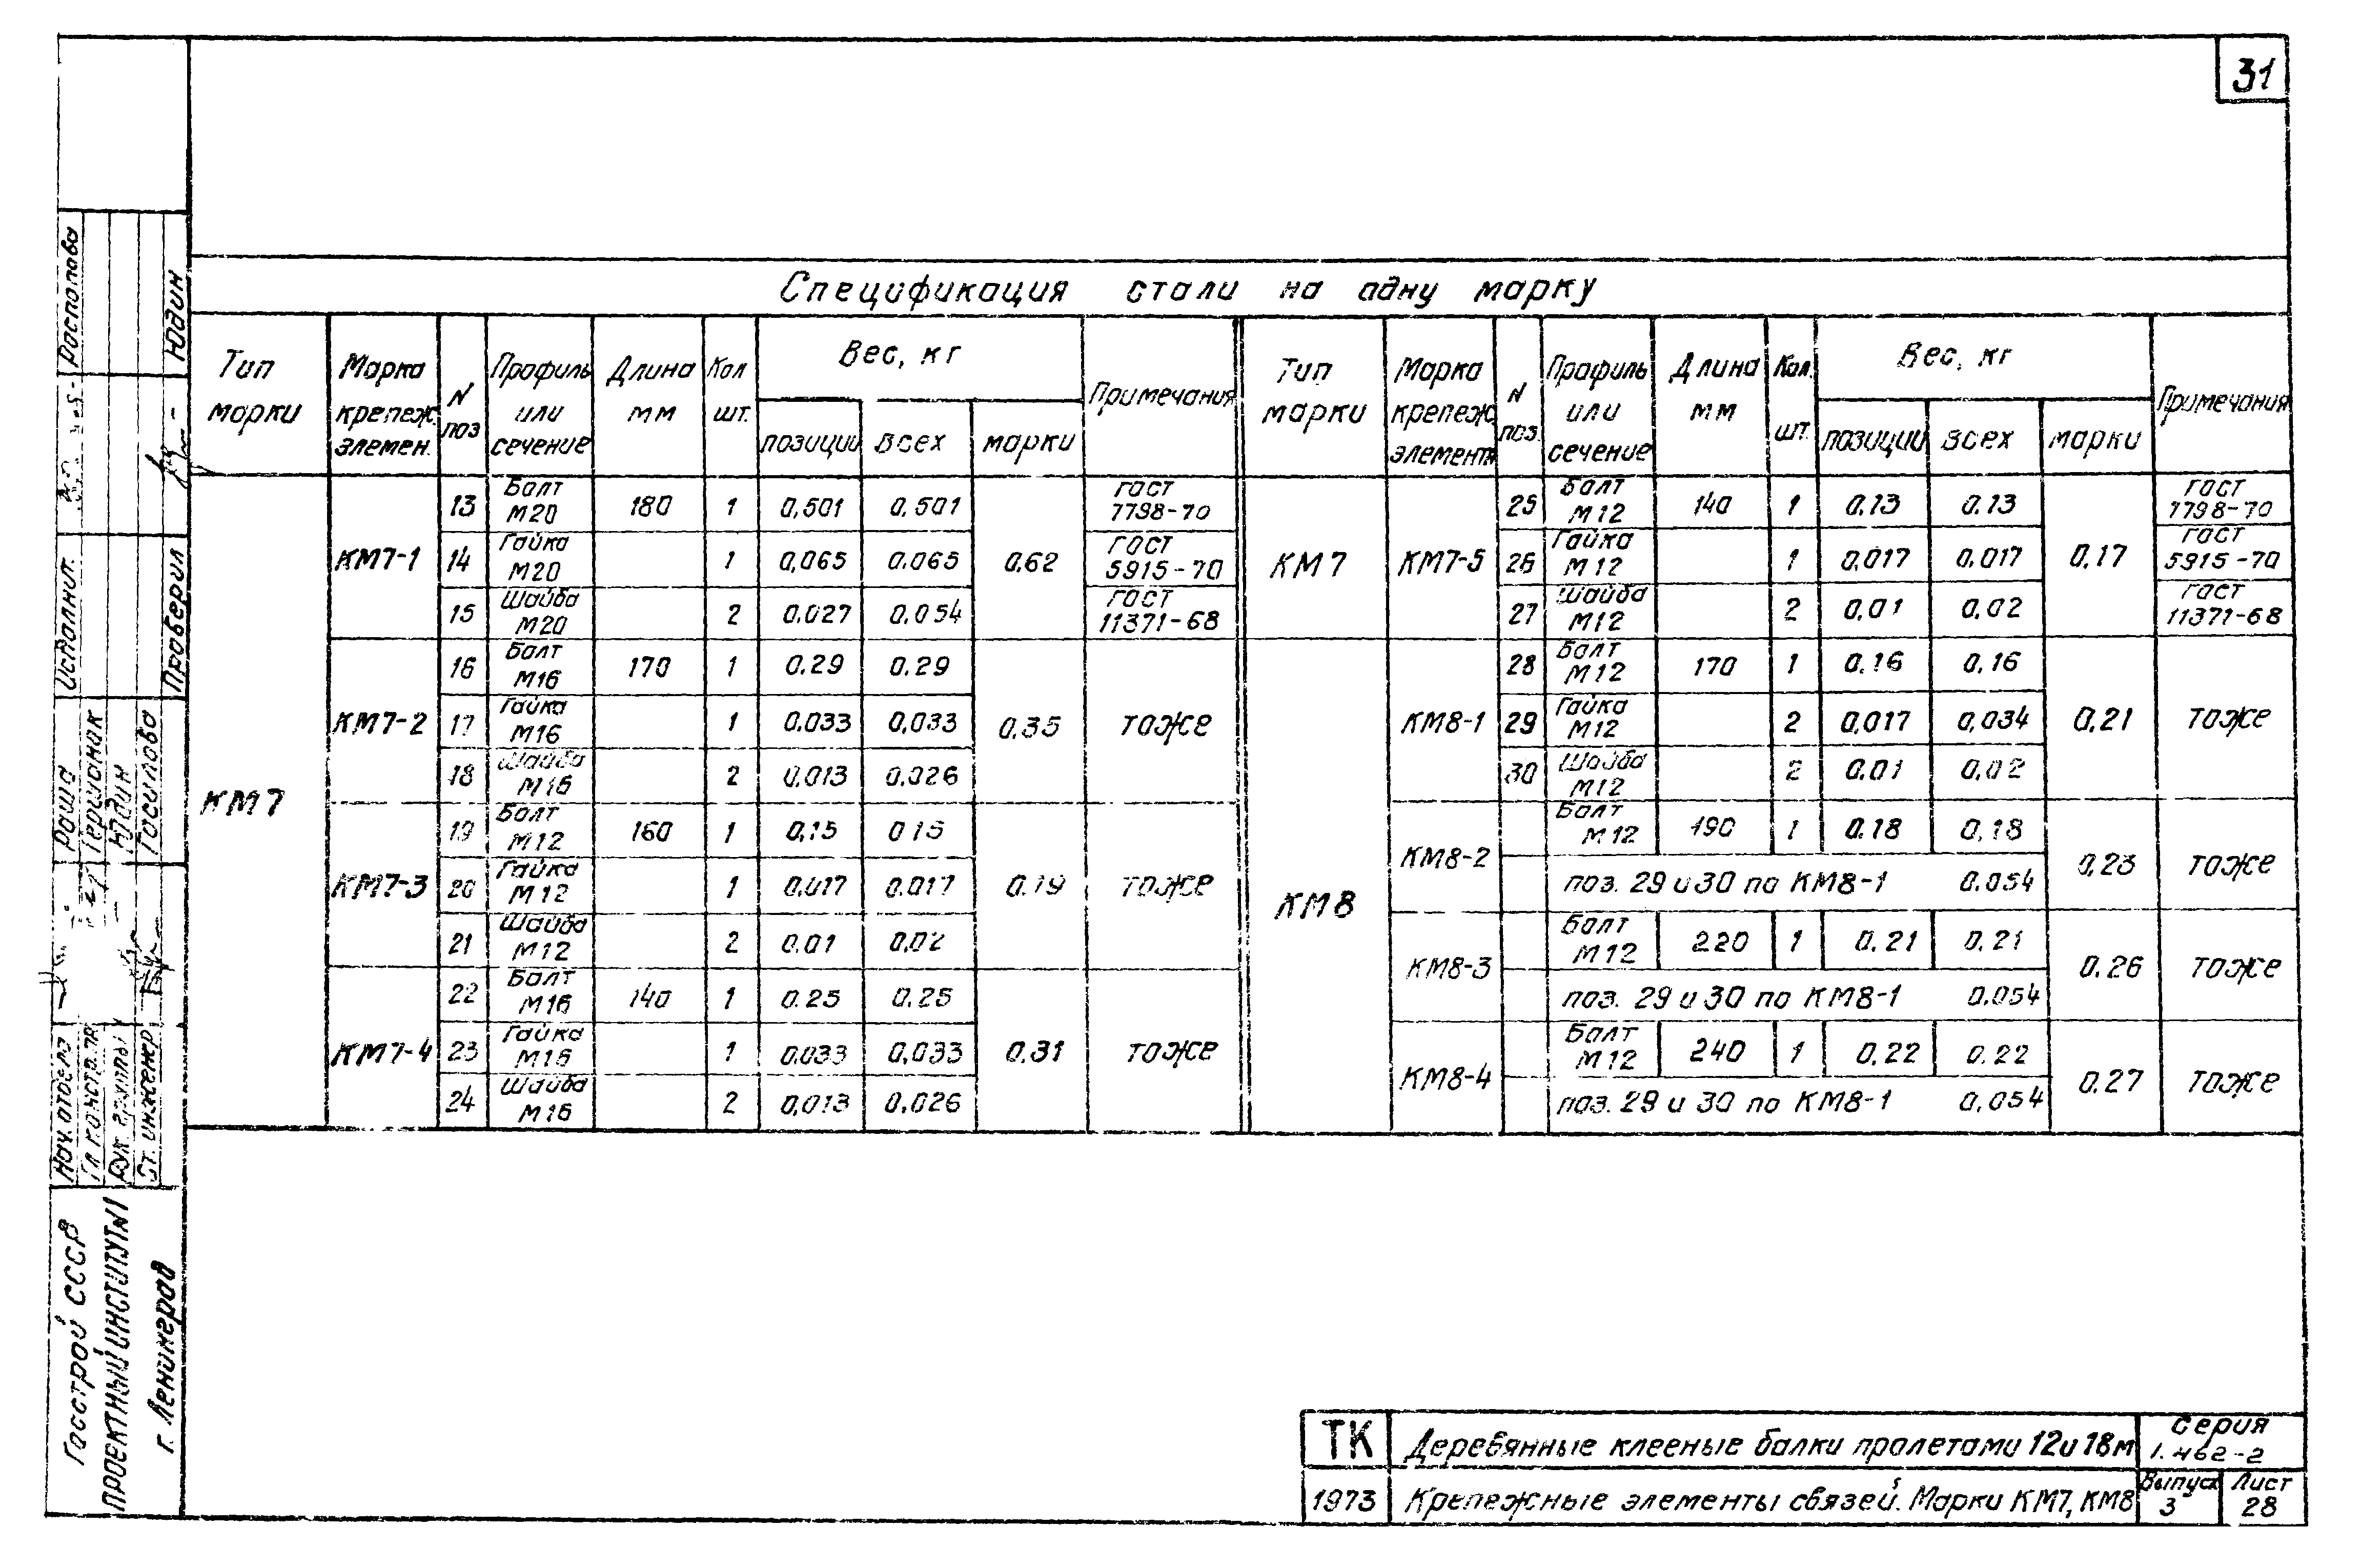 31
Спецификация стали на одну марку
Тип марки | Марка крепеж. элемен. | N поз | Профиль или сечение | Длина мм | Кол шт. | Вес, кг | Примечания
позиции | всех | марки
КМ7
КМ7-1 | 13 | Болт М20 | 180 | 1 | 0,501 | 0,501 | 0.62 | ГОСТ 7798-70
14 | Гайка М20 | 1 | 0,065 | 0.065 | ГОСТ 5915-70
15 | Шайба М20 | 2 | 0.027 | 0.054 | ГОСТ 11371-68
КМ7-2 | 16 | Болт М16 | 170 | 1 | 0.29 | 0.29 | 0.35 | тоже
17 | Гайка М16 | 1 | 0.033 | 0,033
18 | Шайба М16 | 2 | 0,013 | 0.026
КМ7-3 | 19 | Болт М12 | 160 | 1 | 0,15 | 0 15 | 0.19 | тоже
20 | Гайка М12 | 1 | 0,017 | 0.017
21 | Шайба М12 | 2 | 0.01 | 0,02
КМ7-4 | 22 | Болт М16 | 140 | 1 | 0.25 | 0.25 | 0.31 | тоже
23 | Гайка М16 | 1 | 0.033 | 0,033
24 | Шайба М16 | 2 | 0,013 | 0.026
Тип марки | Марка крепеж элемента | N поз. | Профиль или сечение | Длина мм | Кол. шт. | Вес, кг | Примечания
позиции | всех | марки
КМ7
КМ7-5 | 25 | Болт М12 | 140 | 1 | 0.13 | 0.13 | 0,17 | ГОСТ 7798-70
26 | Гайка М12 | 1 | 0,017 | 0,017 | ГОСТ 5915-70
27 | Шайба М12 | 2 | 0,01 | 0,02 | ГОСТ 11371-68
КМ8
КМ8-1 | 28 | Болт М12 | 170 | 1 | 0.16 | 0,16 | 0,21 | тоже
29 | Гайка М12 | 2 | 0,017 | 0,034
30 | Шайба М12 | 2 | 0.01 | 0,02
КМ8-2 | Болт М12 | 190 | 1 | 0.18 | 0,18 | 0,23 | тоже
поз. 29 и 30 по КМ8-1 0.054
КМ8-3 | Болт М12 | 220 | 1 | 0.21 | 0.21 | 0.26 | тоже
поз. 29 и 30 по КМ8-1 0.054
КМ8-4 | Болт М12 | 240 | 1 | 0,22 | 0.22 | 0.27 | тоже
поз. 29 и 30 по КМ8-1 0,054
Располова
Юдин
Исполнит.
Проверил
Юдин
Нач. отдела
Гл констр. пр
Рук. группы
Ст. инженер
Госстрой СССР
ПРОЕКТНЫЙ ИНСТИТУТ N1
г. Ленинград
ТК
Деревянные клееные балки пролетами 12 и 18м
Серия
1.462-2
1973
Крепежные элементы связей. Марки КМ7, КМ8
Выпуск
3
Лист
28